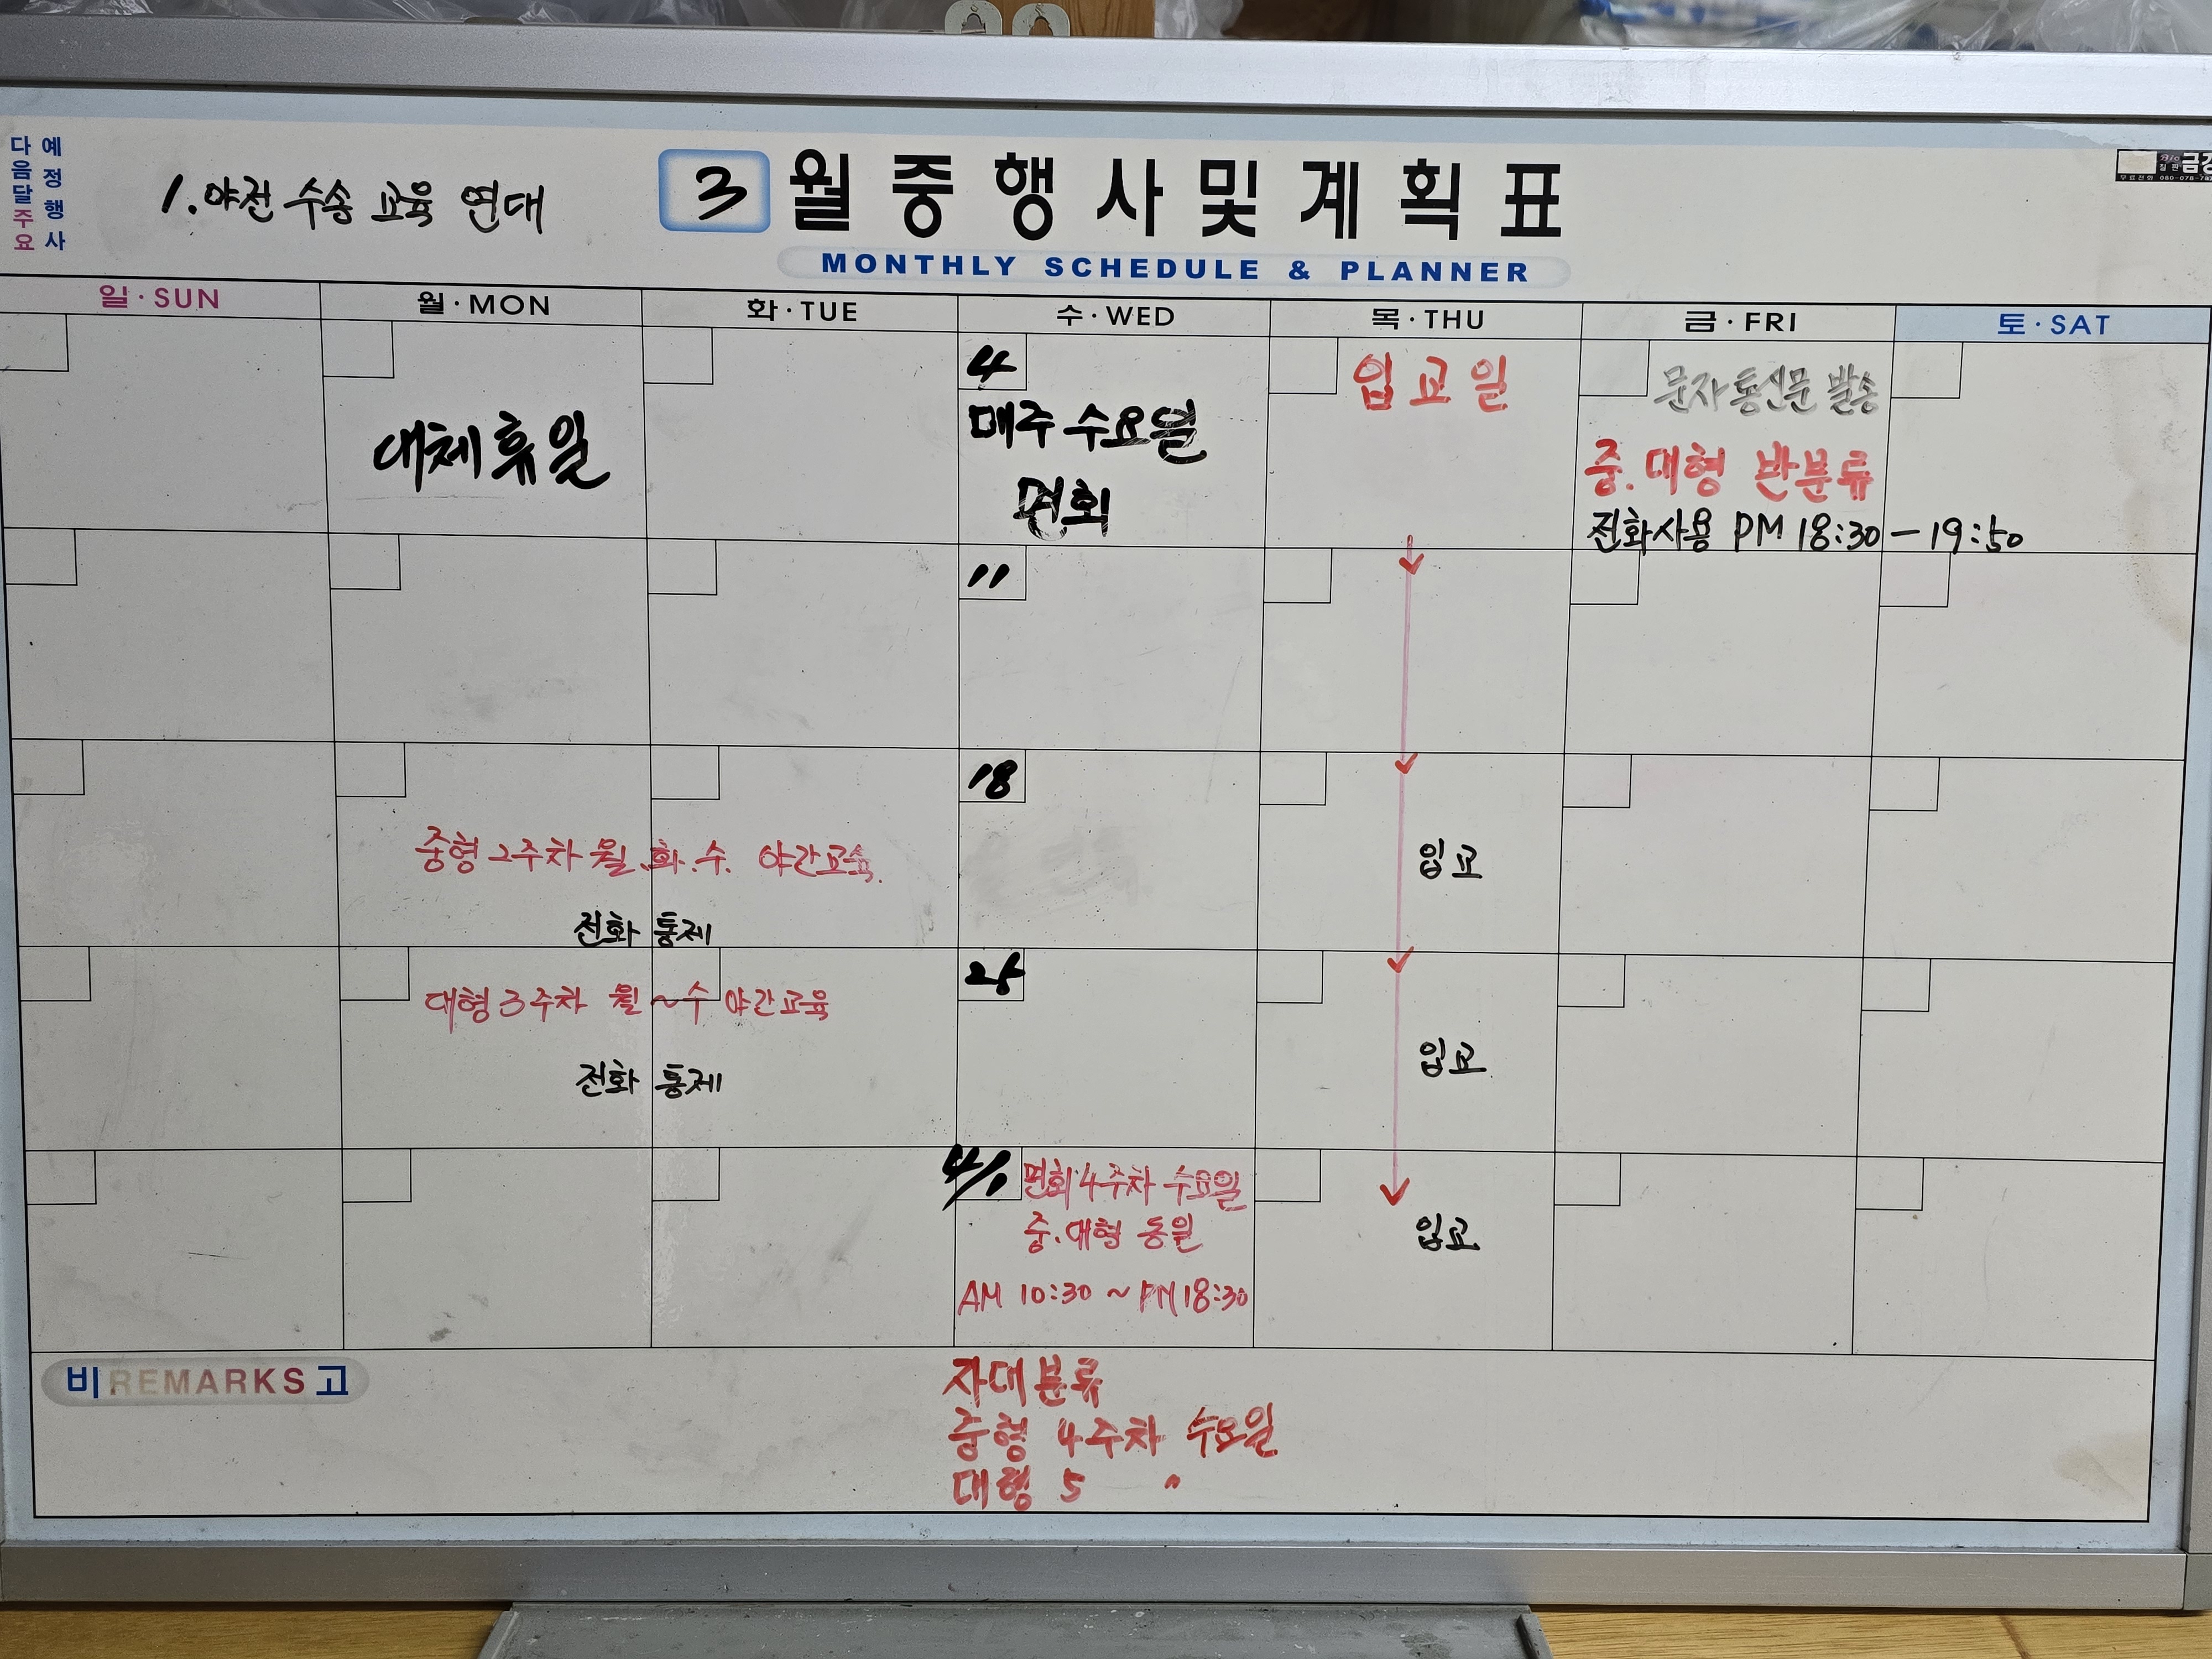 다음달주요
예정행사
1. 야전 수송 교육 연대
3 월중행사및계획표
MONTHLY SCHEDULE & PLANNER
일·SUN 월·MON 화·TUE 수·WED 목·THU 금·FRI 토·SAT
4 입교일 문자통신문 발송
대체휴일 매주 수요일 중.대형 반분류
면회 전화사용 PM 18:30 - 19:50
11
18
중형 2주차 월.화.수. 야간교육. 입교
전화 통제
25
대형 3주차 월~수 야간교육
전화 통제 입교
4/1 면회 4주차 수요일
중.대형 동일 입교
AM 10:30 ~ PM 18:30
비 REMARKS 고
자대분류
중형 4주차 수요일
대형 5 〃